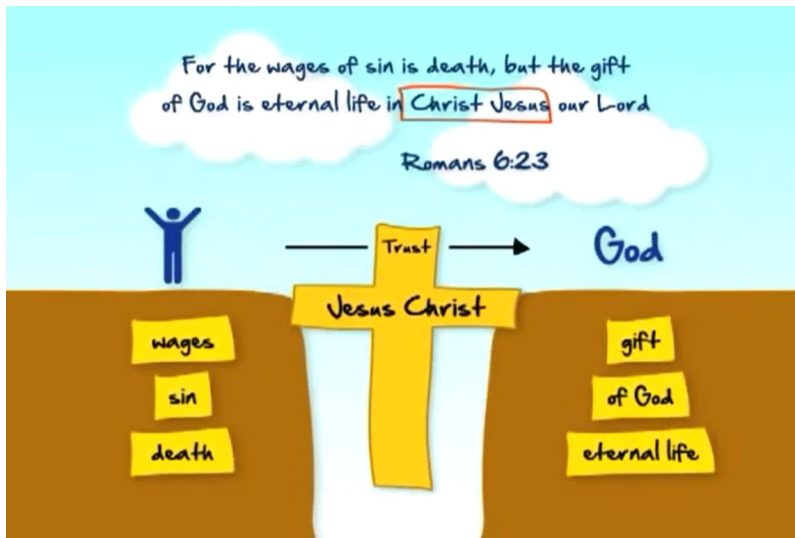 For the wages of sin is death, but the gift
of God is eternal life in Christ Jesus our Lord
Romans 6:23
Trust
God
Jesus Christ
wages
sin
death
gift
of God
eternal life